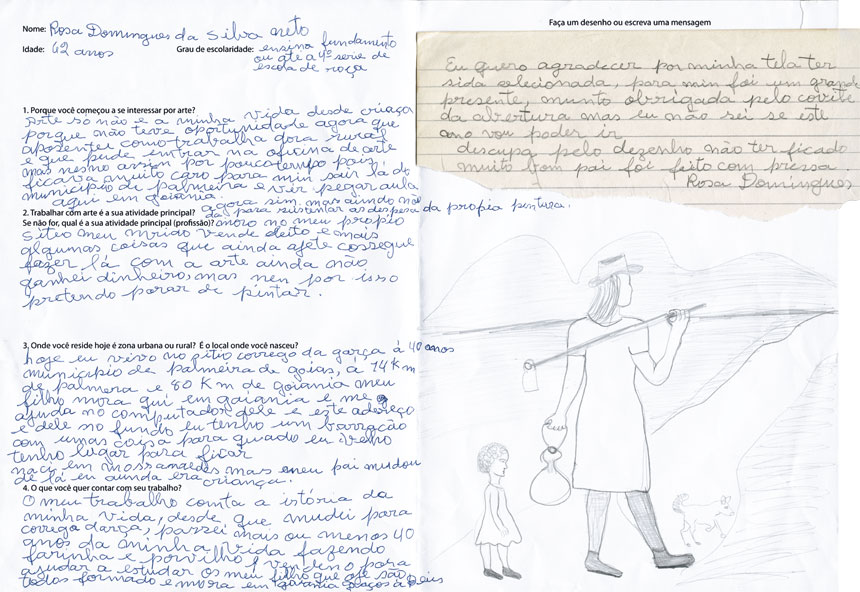 Nome: Rosa Domingues da Silva neto
Idade: 62 anos
Grau de escolaridade: ensina fundamento
ou até a 4º serie de
escola de roça
1. Porque você começou a se interessar por arte?
Arte só não e a minha vida desde criaça
porque não teve oportunidade agora que
aposentei como trabalha gora rural
e que pude entrar na oficina de arte
mas nesmo assim por pouco tempo pois
ficava muito caro para min sair lá do
municipio de palmeira e vir pegar aula
aqui em goiania
2. Trabalhar com arte é a sua atividade principal?
agora sim mas aindo não
da para sustentar as despesa da propia pintura.
Se não for, qual é a sua atividade principal (profissão)? moro no meu propio
sitio meu mrido vende leito e mais
algumas coisas que ainda agete cossegue
fazer lá com a arte ainda não
ganhei dinheiro, mas nen por isso
pretendo parar de pintar.
3. Onde você reside hoje é zona urbana ou rural? É o local onde você nasceu?
hoje eu vivo no sitio corrego da garça á 40 anos
municipio de palmeira de goias, á 14 km
de palmera e 80 Km de goiania meu
filho mora qui em goiania e me
ajuda no computador dele e este adereço
e dele no fundo eu tenho um barracão
com umas cousa para quado eu velho
tenho lugar para ficar
naci em mossamedes mas meu pai mudou
de lá eu ainda era criança.
4. O que você quer contar com seu trabalho?
O meu trabalho comta a istória da
minha vida, desde que mudei para
corrego darça, passei mais ou menos 40
anos da minha vida fazendo
farinha e porvilho, e vendeno para
ajudar a estudar os meu filho que oje são
todos formado e mora em goiania graços a Deus
Faça um desenho ou escreva uma mensagem
Eu quero agradecer por minha tela ter
sida selecionada, para min foi um grande
presente, muinto obrrigada pelo covite
da abertura mas eu não sei se este
ano vou poder ir
descupa pelo dezenho não ter ficado
muito bom pai foi feito com pressa
Rosa Domingues